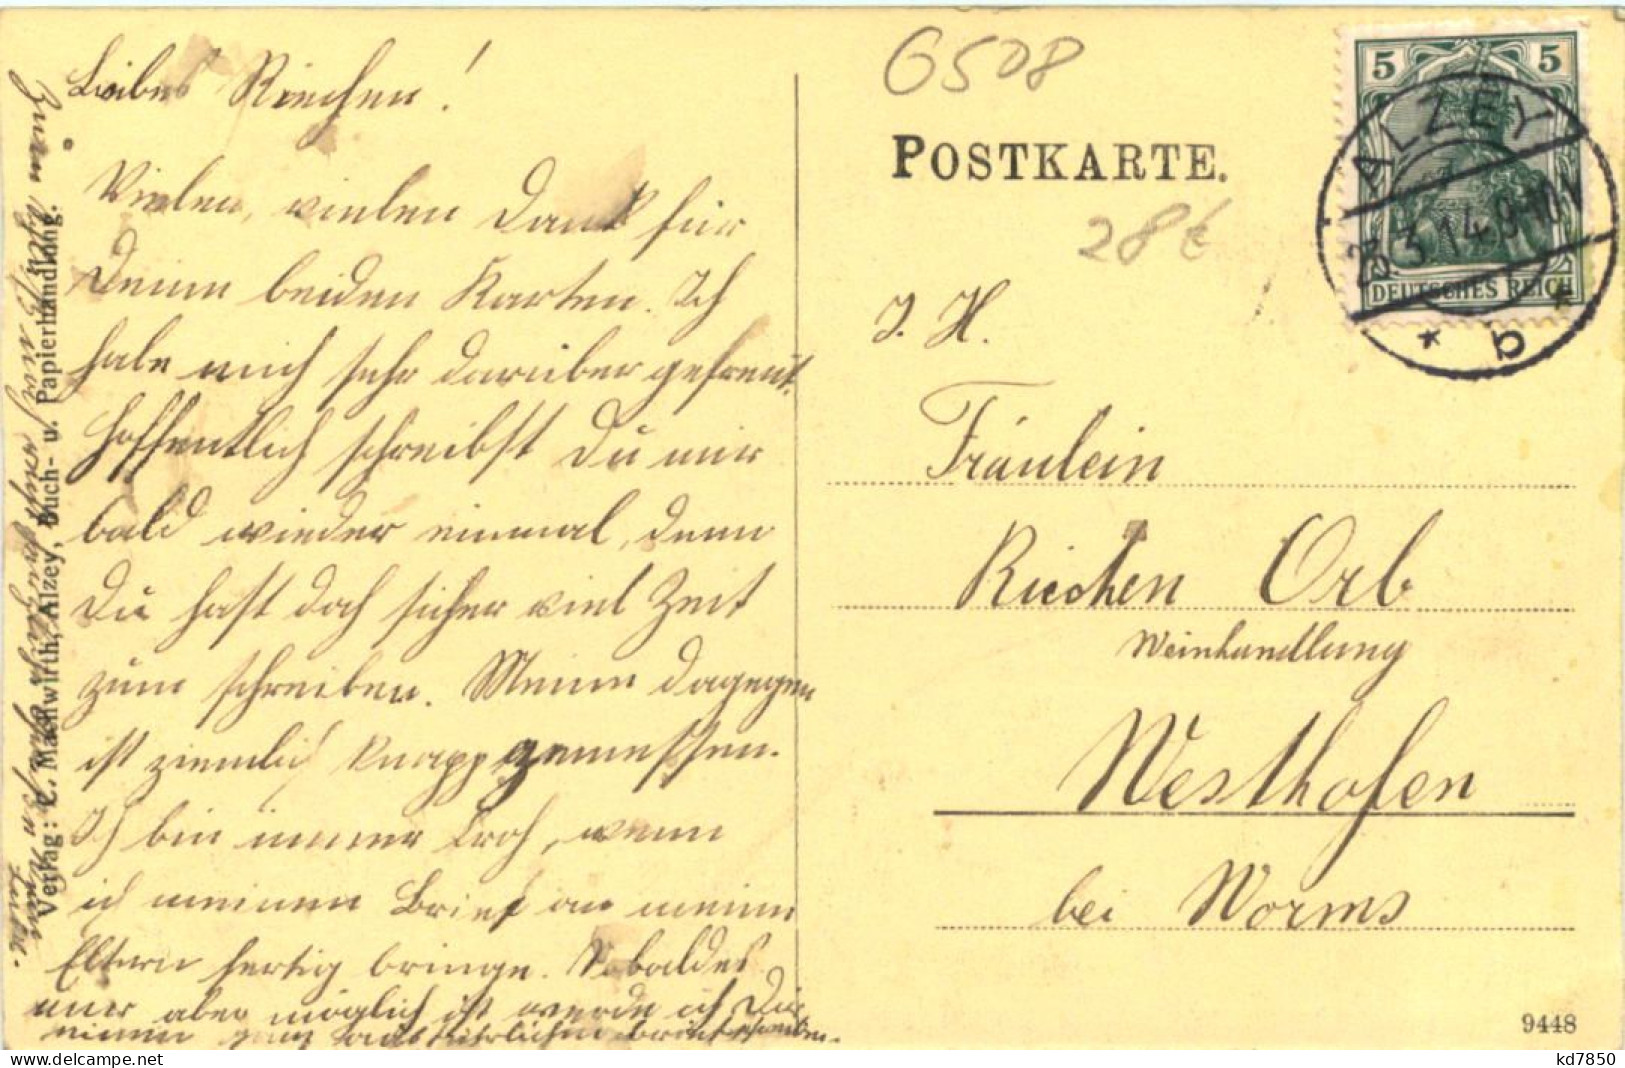 Liebes Riechen!
Vielen, vielen Dank für
Deine beiden Karten. Ich
habe mich sehr darüber gefreut.
Hoffentlich schreibst Du mir
bald wieder einmal, denn
Du hast doch sicher viel Zeit
zum schreiben. Meine dagegen
ist ziemlich knapp gemessen.
Ich bin immer froh, wenn
ich meinen Brief an meine
Eltern fertig bringe. Sobald es
mir aber möglich ist werde ich Dir
einen ganz ausführlichen Brief schreiben.
Verlag: C. Machwirth, Alzey, Buch- u. Papierhandlung.
6508
POSTKARTE.
28 €
J. H.
Fräulein
Riechen Orb
Weinhandlung
Westhofen
bei Worms
9448
5 5
DEUTSCHES REICH
ALZEY
23.3.14.9-10V
* b *
kd7850
delcampe.net